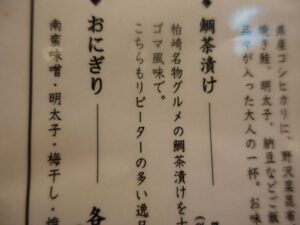 県産コシヒカリに、野沢菜昆布
焼き鮭、明太子、納豆などご飯
品々が入った大人の一杯。お味
◆鯛茶漬け
柏崎名物グルメの鯛茶漬けを
ゴマ風味で。
こちらもリピーターの多い逸品
◆おにぎり
各
南蛮味噌・明太子・梅干し・焼